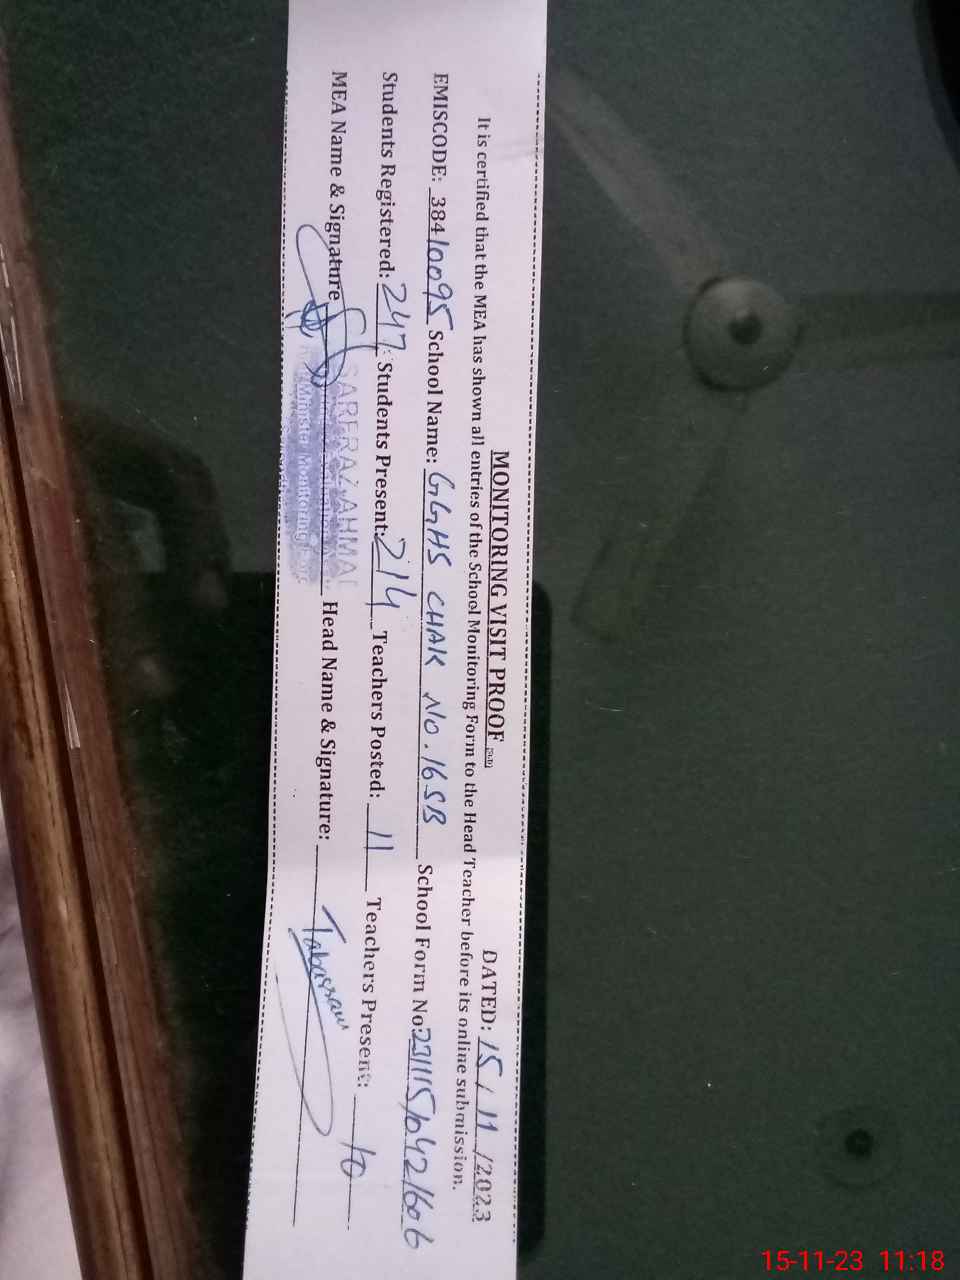 MONITORING VISIT PROOF
DATED: 15/11/2023
It is certified that the MEA has shown all entries of the School Monitoring Form to the Head Teacher before its online submission.
EMISCODE: 38410095 School Name: GGHS CHAK NO.16SB School Form No:
Students Registered: 247 Students Present: 214 Teachers Posted: 11 Teachers Present: 10
MEA Name & Signature SARFRAZ AHMAD Head Name & Signature: Tabassam
15-11-23 11:18